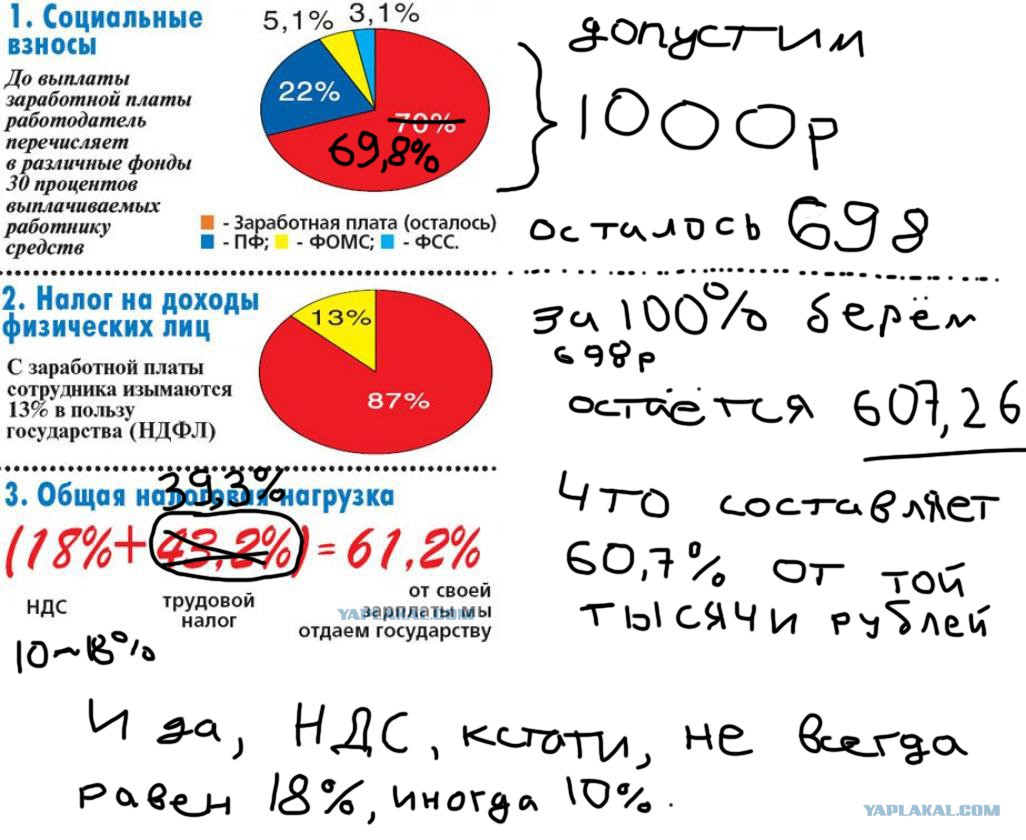 1. Социальные
взносы
До выплаты
заработной платы
работодатель
перечисляет
в различные фонды
30 процентов
выплачиваемых
работнику
средств
5,1% 3,1%
22%
70%
69,8%
- Заработная плата (осталось)
- ПФ; - ФОМС; - ФСС.
допустим
1000р
осталось 698
2. Налог на доходы
физических лиц
С заработной платы
сотрудника изымаются
13% в пользу
государства (НДФЛ)
13%
87%
за 100% берём
698р
остаётся 607,26
39,3%
3. Общая налоговая нагрузка
(18%+43,2%)=61,2%
НДС
трудовой
налог
от своей
зарплаты мы
отдаем государству
YAPLAKAL.COM
10~18%
что составляет
60,7% от той
тысячи рублей
И да, НДС, кстати, не всегда
равен 18%, иногда 10%.
YAPLAKAL.COM